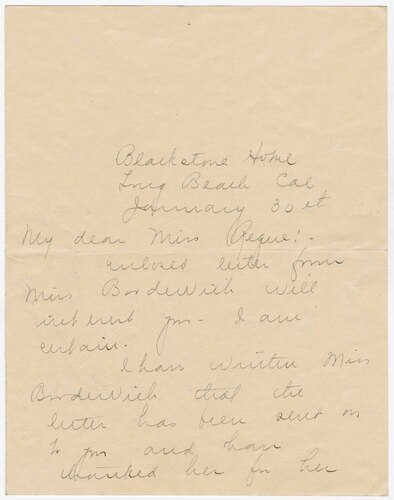 Blackstone Hotel
Long Beach Cal
January 30 et
My dear Miss Reque:-
Enclosed letter from
Miss Bordewich will
interest you - I am
certain.
I have written Miss
Bordewich that the
letter has been sent on
to you and have
thanked her for her